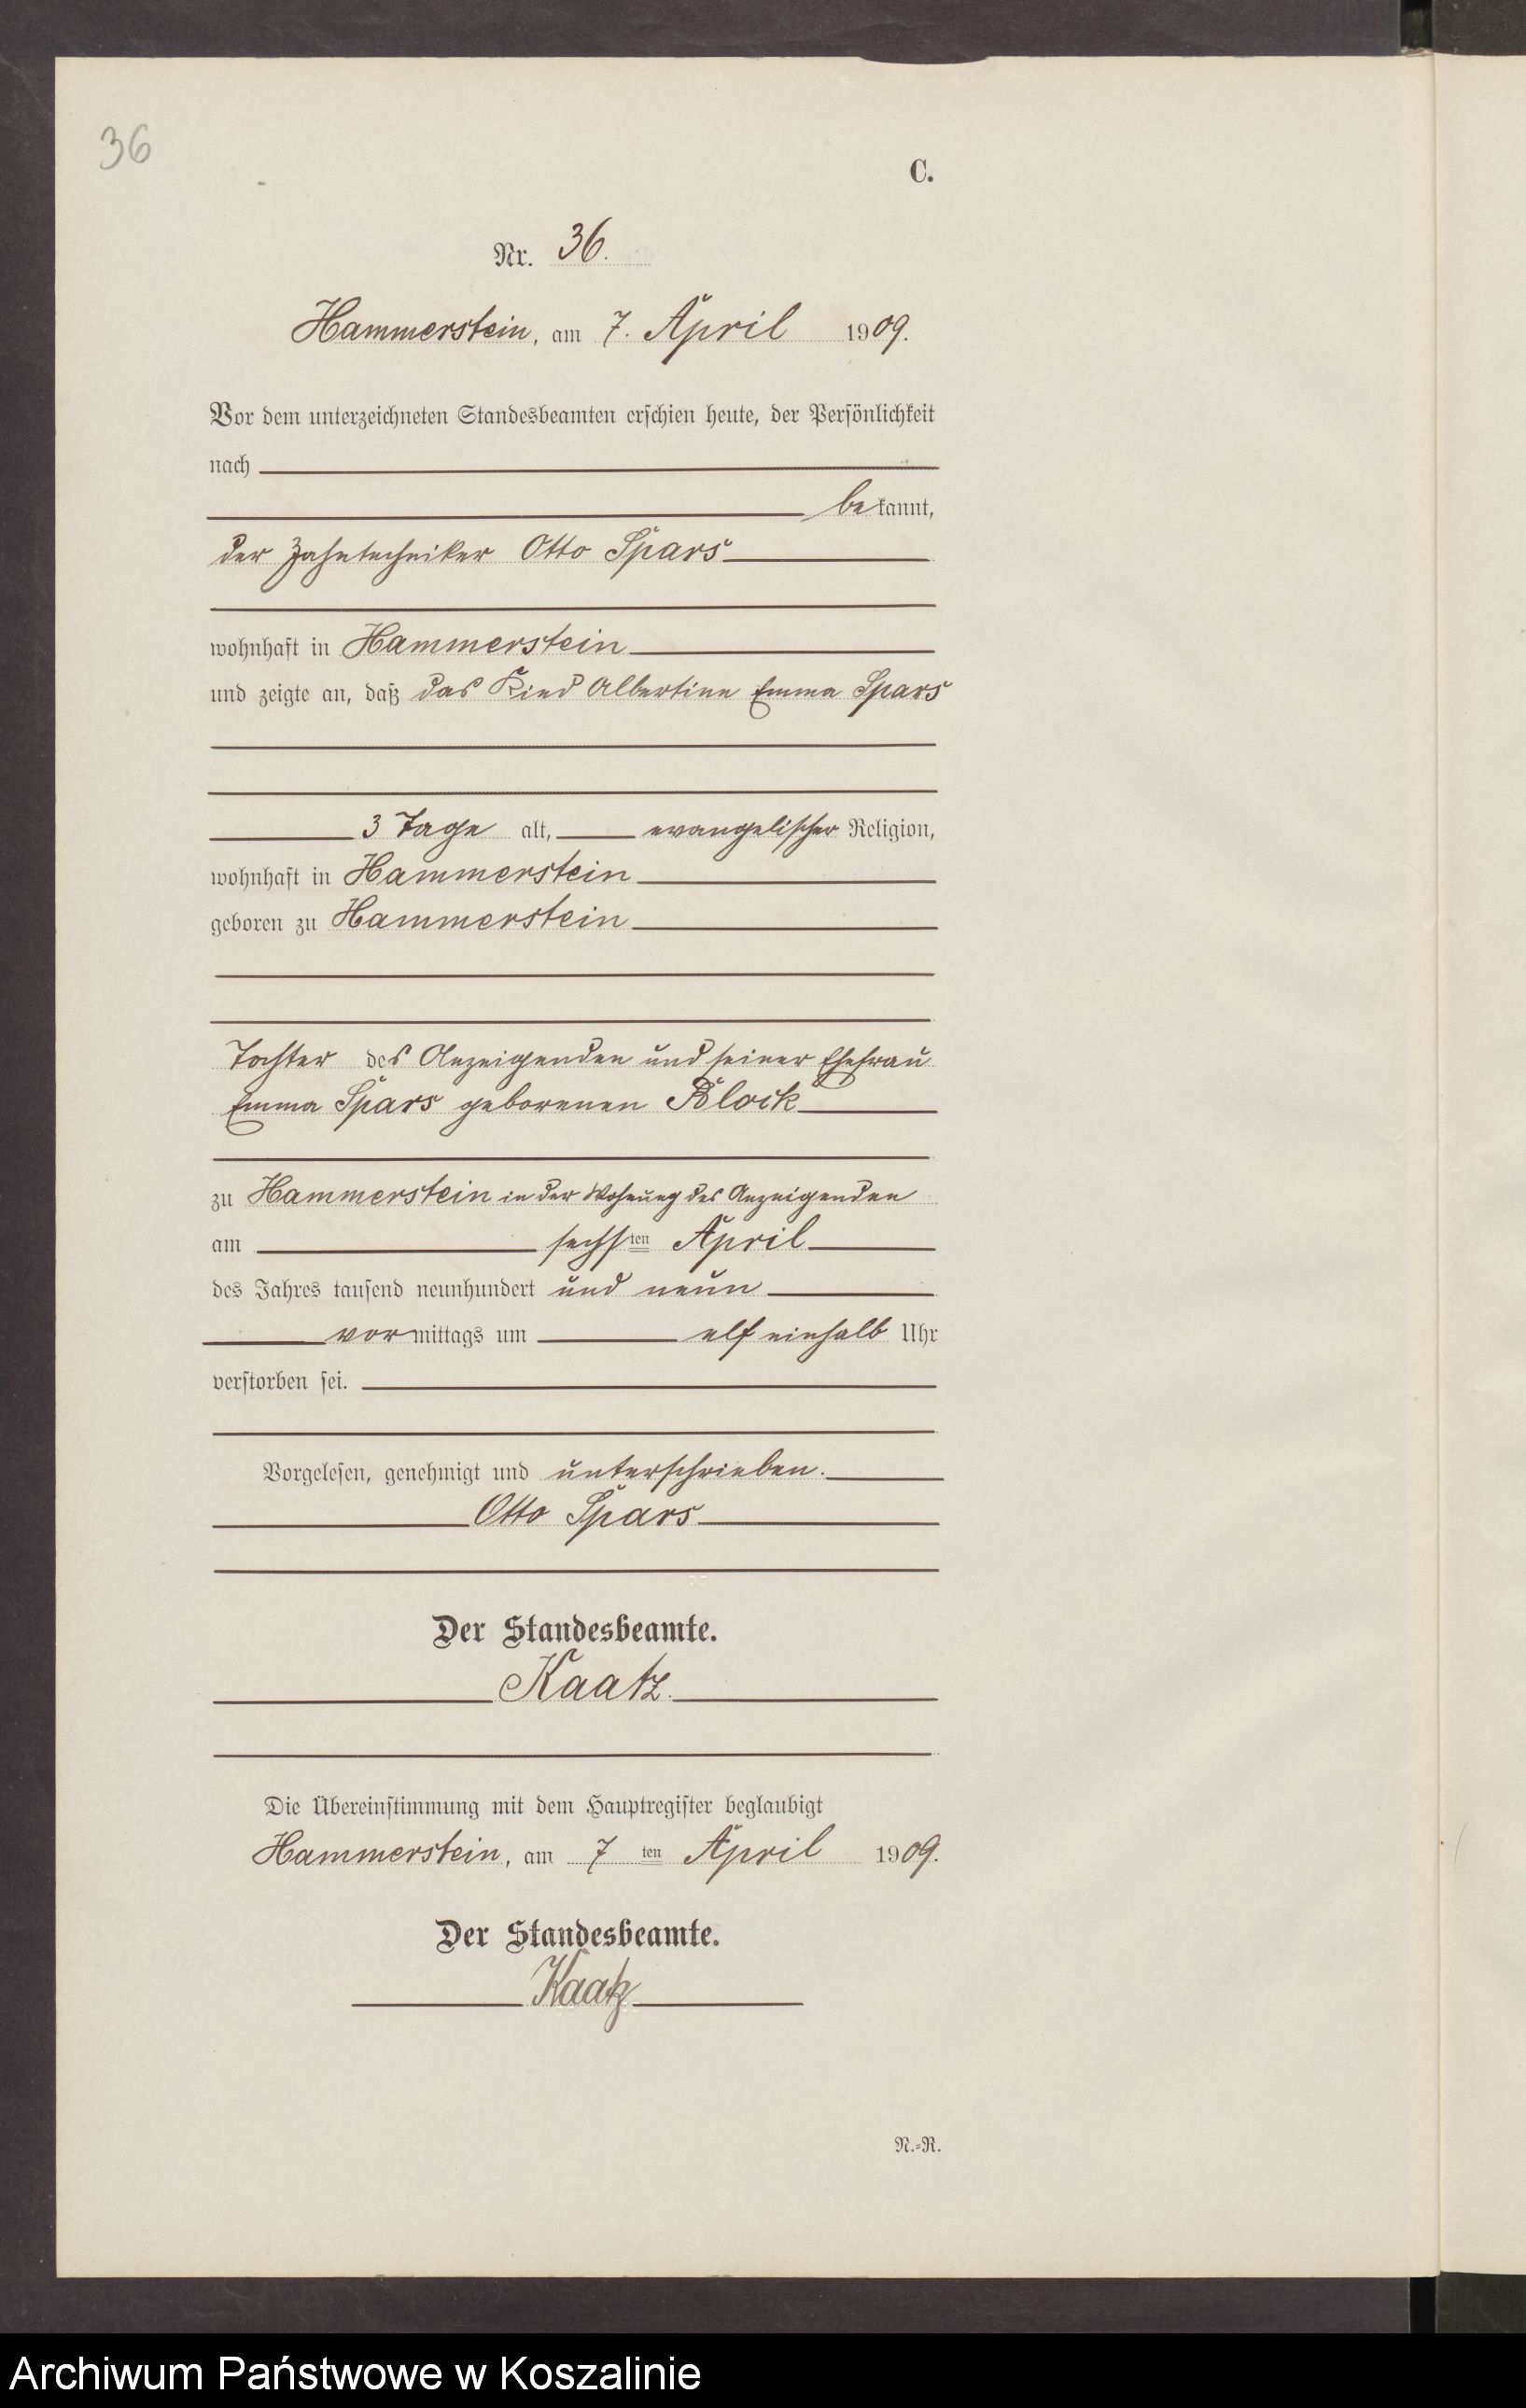 36
C.
Nr. 36.
Hammerstein, am 7. April 1909.
Vor dem unterzeichneten Standesbeamten erschien heute, der Persönlichkeit
nach
bekannt,
der Zahntechniker Otto Spars
wohnhaft in Hammerstein
und zeigte an, daß das Kind Albertine Emma Spars
3 Tage alt, evangelischer Religion,
wohnhaft in Hammerstein
geboren zu Hammerstein
Tochter des Anzeigenden und seiner Ehefrau
Emma Spars geborenen Block
zu Hammerstein in der Wohnung des Anzeigenden
am sechsten April
des Jahres tausend neunhundert und neun
vormittags um elf einhalb Uhr
verstorben sei.
Vorgelesen, genehmigt und unterschrieben.
Otto Spars
Der Standesbeamte.
Kaatz.
Die Übereinstimmung mit dem Hauptregister beglaubigt
Hammerstein, am 7 ten April 1909.
Der Standesbeamte.
Kaatz
N.-R.
Archiwum Państwowe w Koszalinie